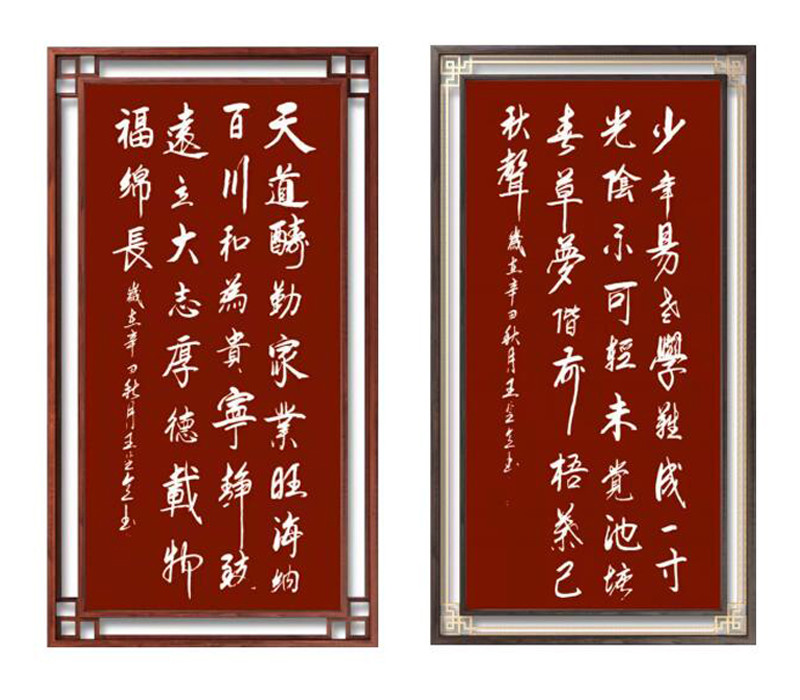 天道酬勤家業旺海納
百川和為貴寧靜致
遠立大志厚德載物
福綿長
歲在辛丑秋月王書
少年易老學難成一寸
光陰不可輕未覺池塘
春草夢階前梧葉已
秋聲
歲在辛丑秋月王書